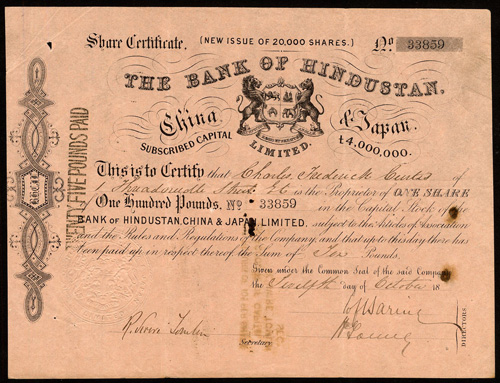 Share Certificate. (NEW ISSUE OF 20,000 SHARES.) No. 33859
THE BANK OF HINDUSTAN,
China & Japan.
SUBSCRIBED CAPITAL £4,000,000.
LIMITED.
This is to Certify that Charles Frederick of
1 Threadneedle Street E.C. is the Proprietor of ONE SHARE
of One Hundred Pounds, No. 33859 in the Capital Stock of the
BANK OF HINDUSTAN, CHINA & JAPAN, LIMITED, subject to the Articles of Association
and the Rules and Regulations of the Company, and that up to this day there has
been paid up in respect thereof the Sum of Pounds.
Given under the Common Seal of the said Company
the Twelfth day of October 18
Secretary.
DIRECTORS
TWENTY FIVE POUNDS PAID